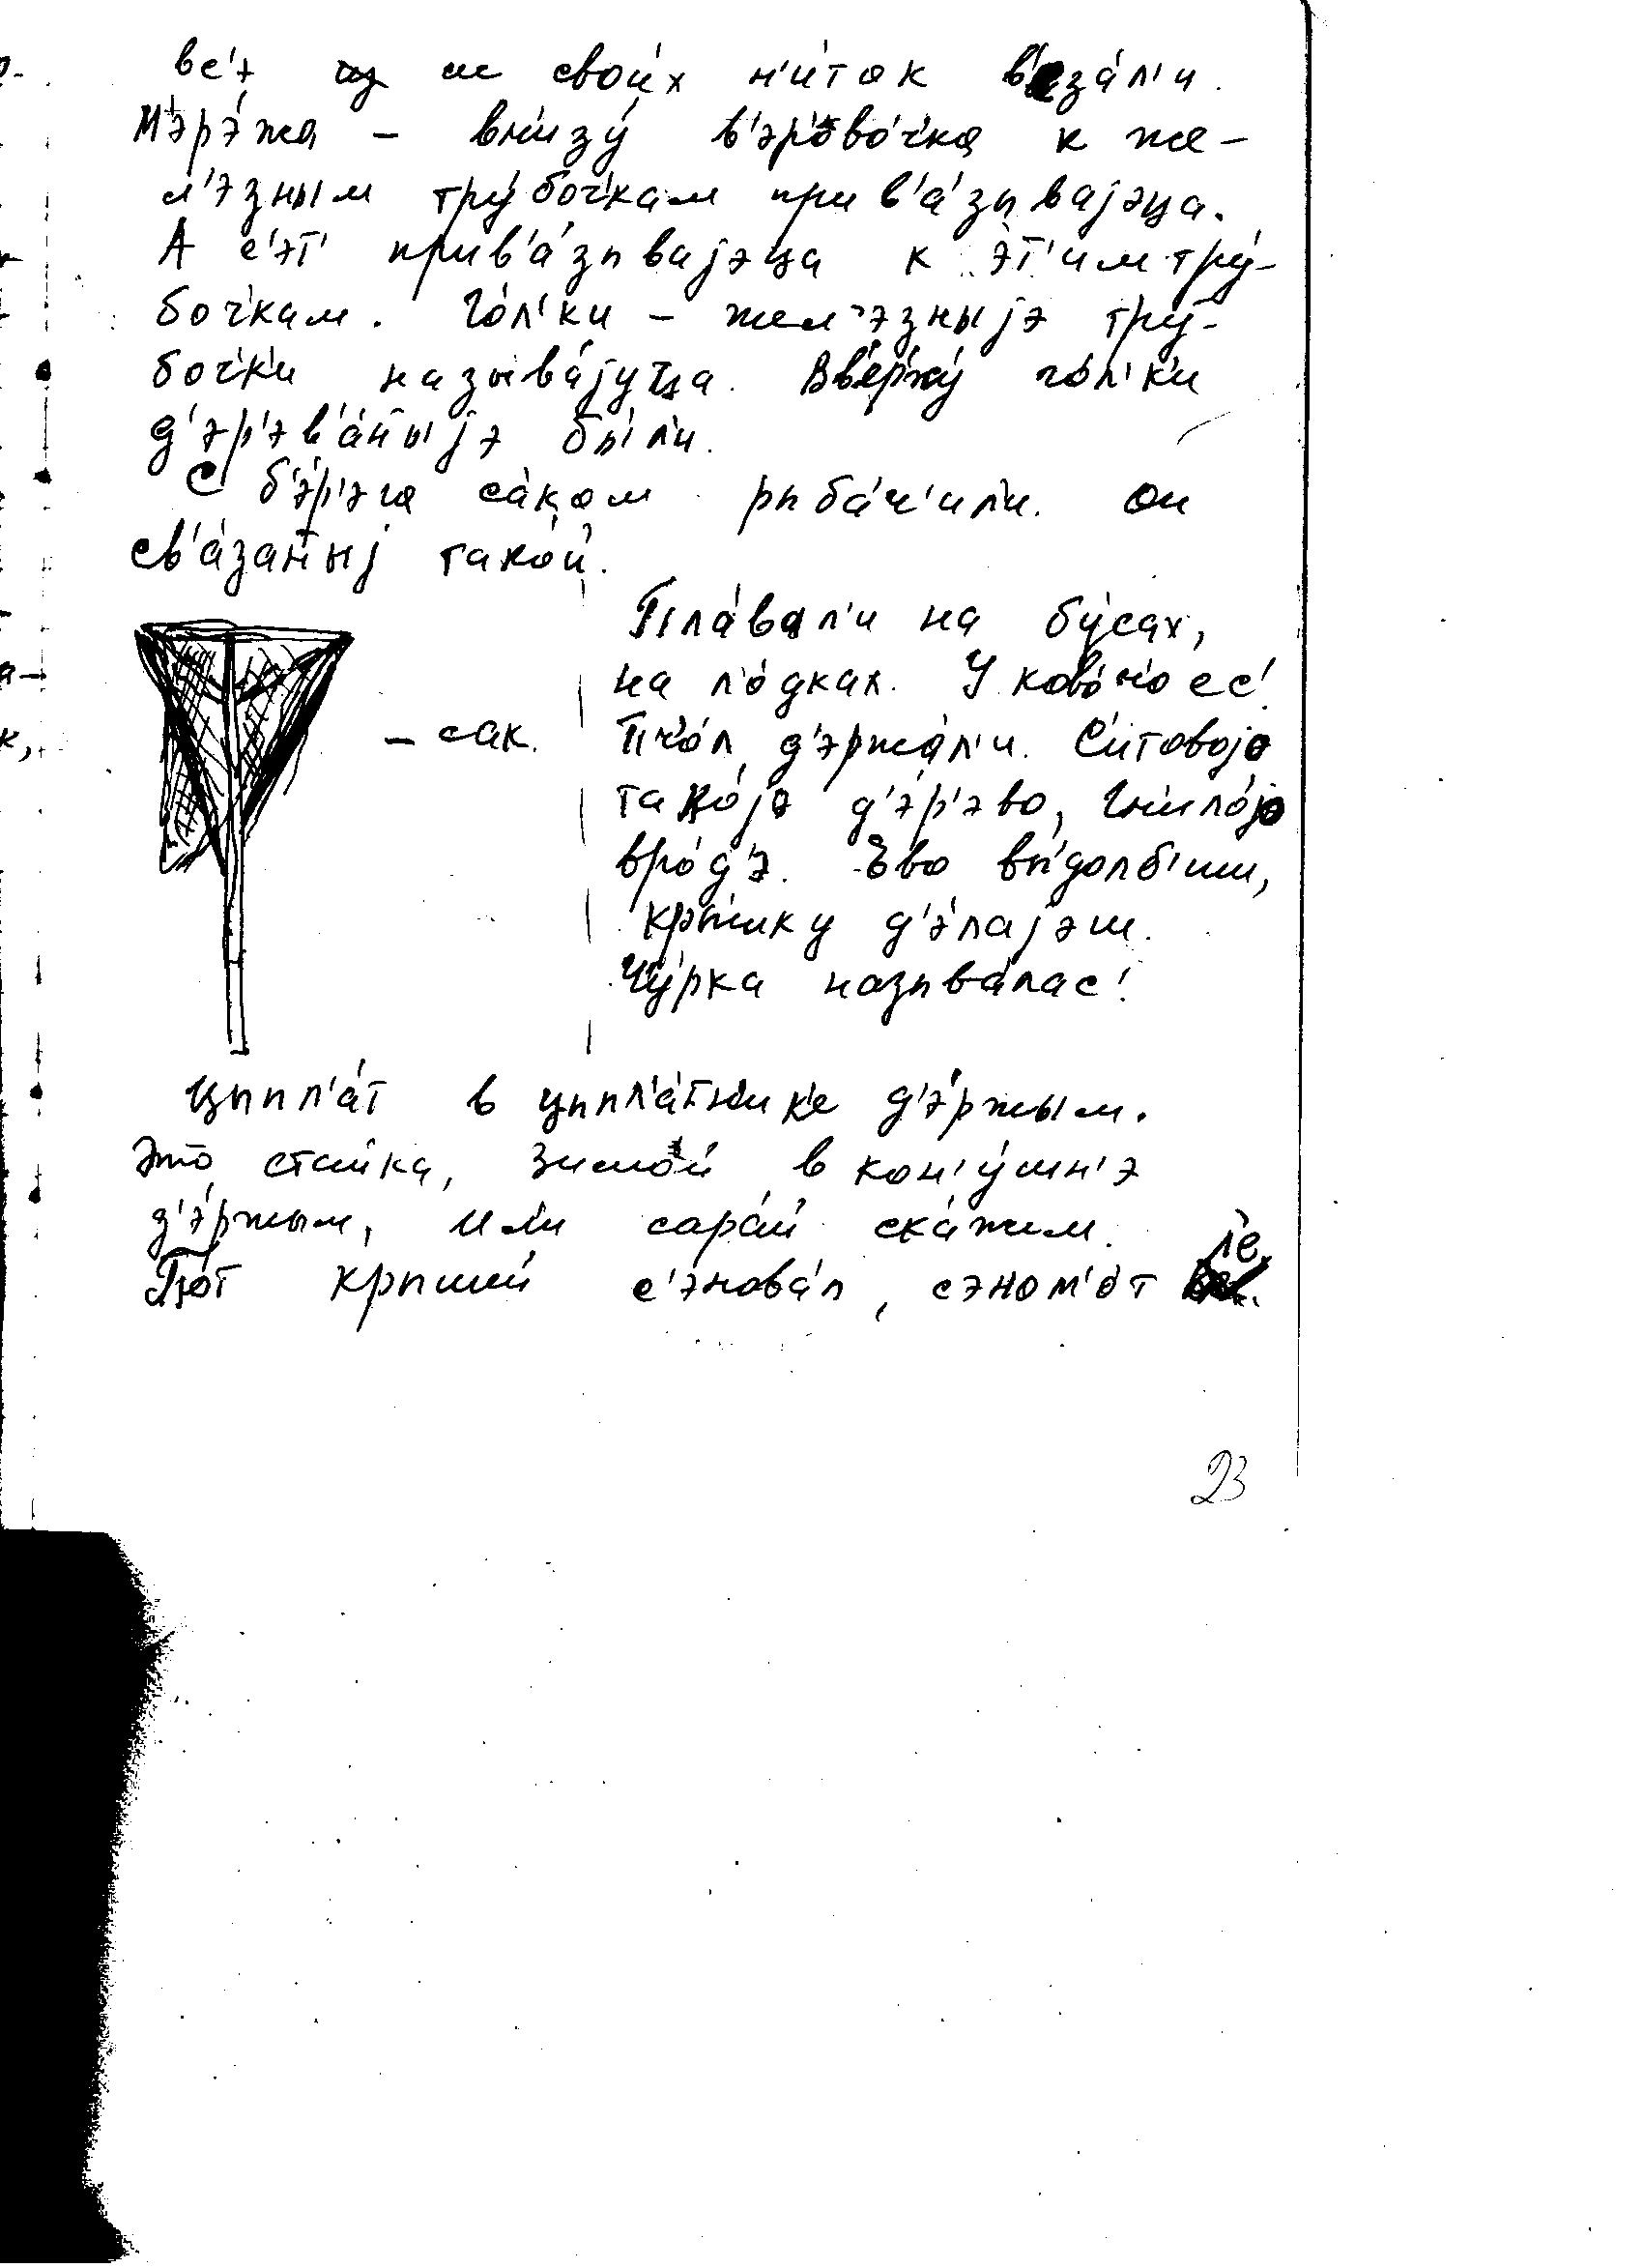 вс'э ис свои́х н'и́ток в'аза́л'и.
М'эр'э́жа – вн'изу́ в'эр'о́вочка к же-
л'э́зным тру́бочкам прив'а́зывајэца.
А с'эт' прив'а́зывајэца к э́т'им тру́-
бочкам. Го́л'ки – жел'э́зныјэ тру́-
бочки называ́јуца. Вв'ерху́ го́л'ки
д'эр'эв'а́ныјэ бы́л'и.
С б'э́р'эга са́ком рыба́ч'или. Он
св'а́заныј тако́й.
– сак.
Пла́вал'и на бу́сах,
на ло́дках. У ково́ што ес'.
Пчол д'эржа́л'и. Си́товојэ
тако́јэ д'э́р'эво, гнило́јэ
вро́д'э. Ево вы́долб'иш,
кры́шку д'э́лајэш.
Чу́рка называ́лас'.
Цыпл'а́т в цыпл'а́тнике д'э́ржым.
Это ста́йка, зимо́й в кон'у́шн'э
д'э́ржым, или сара́й ска́жим.
Под кры́шей с'энова́л, сэно м'о́т ле.
23